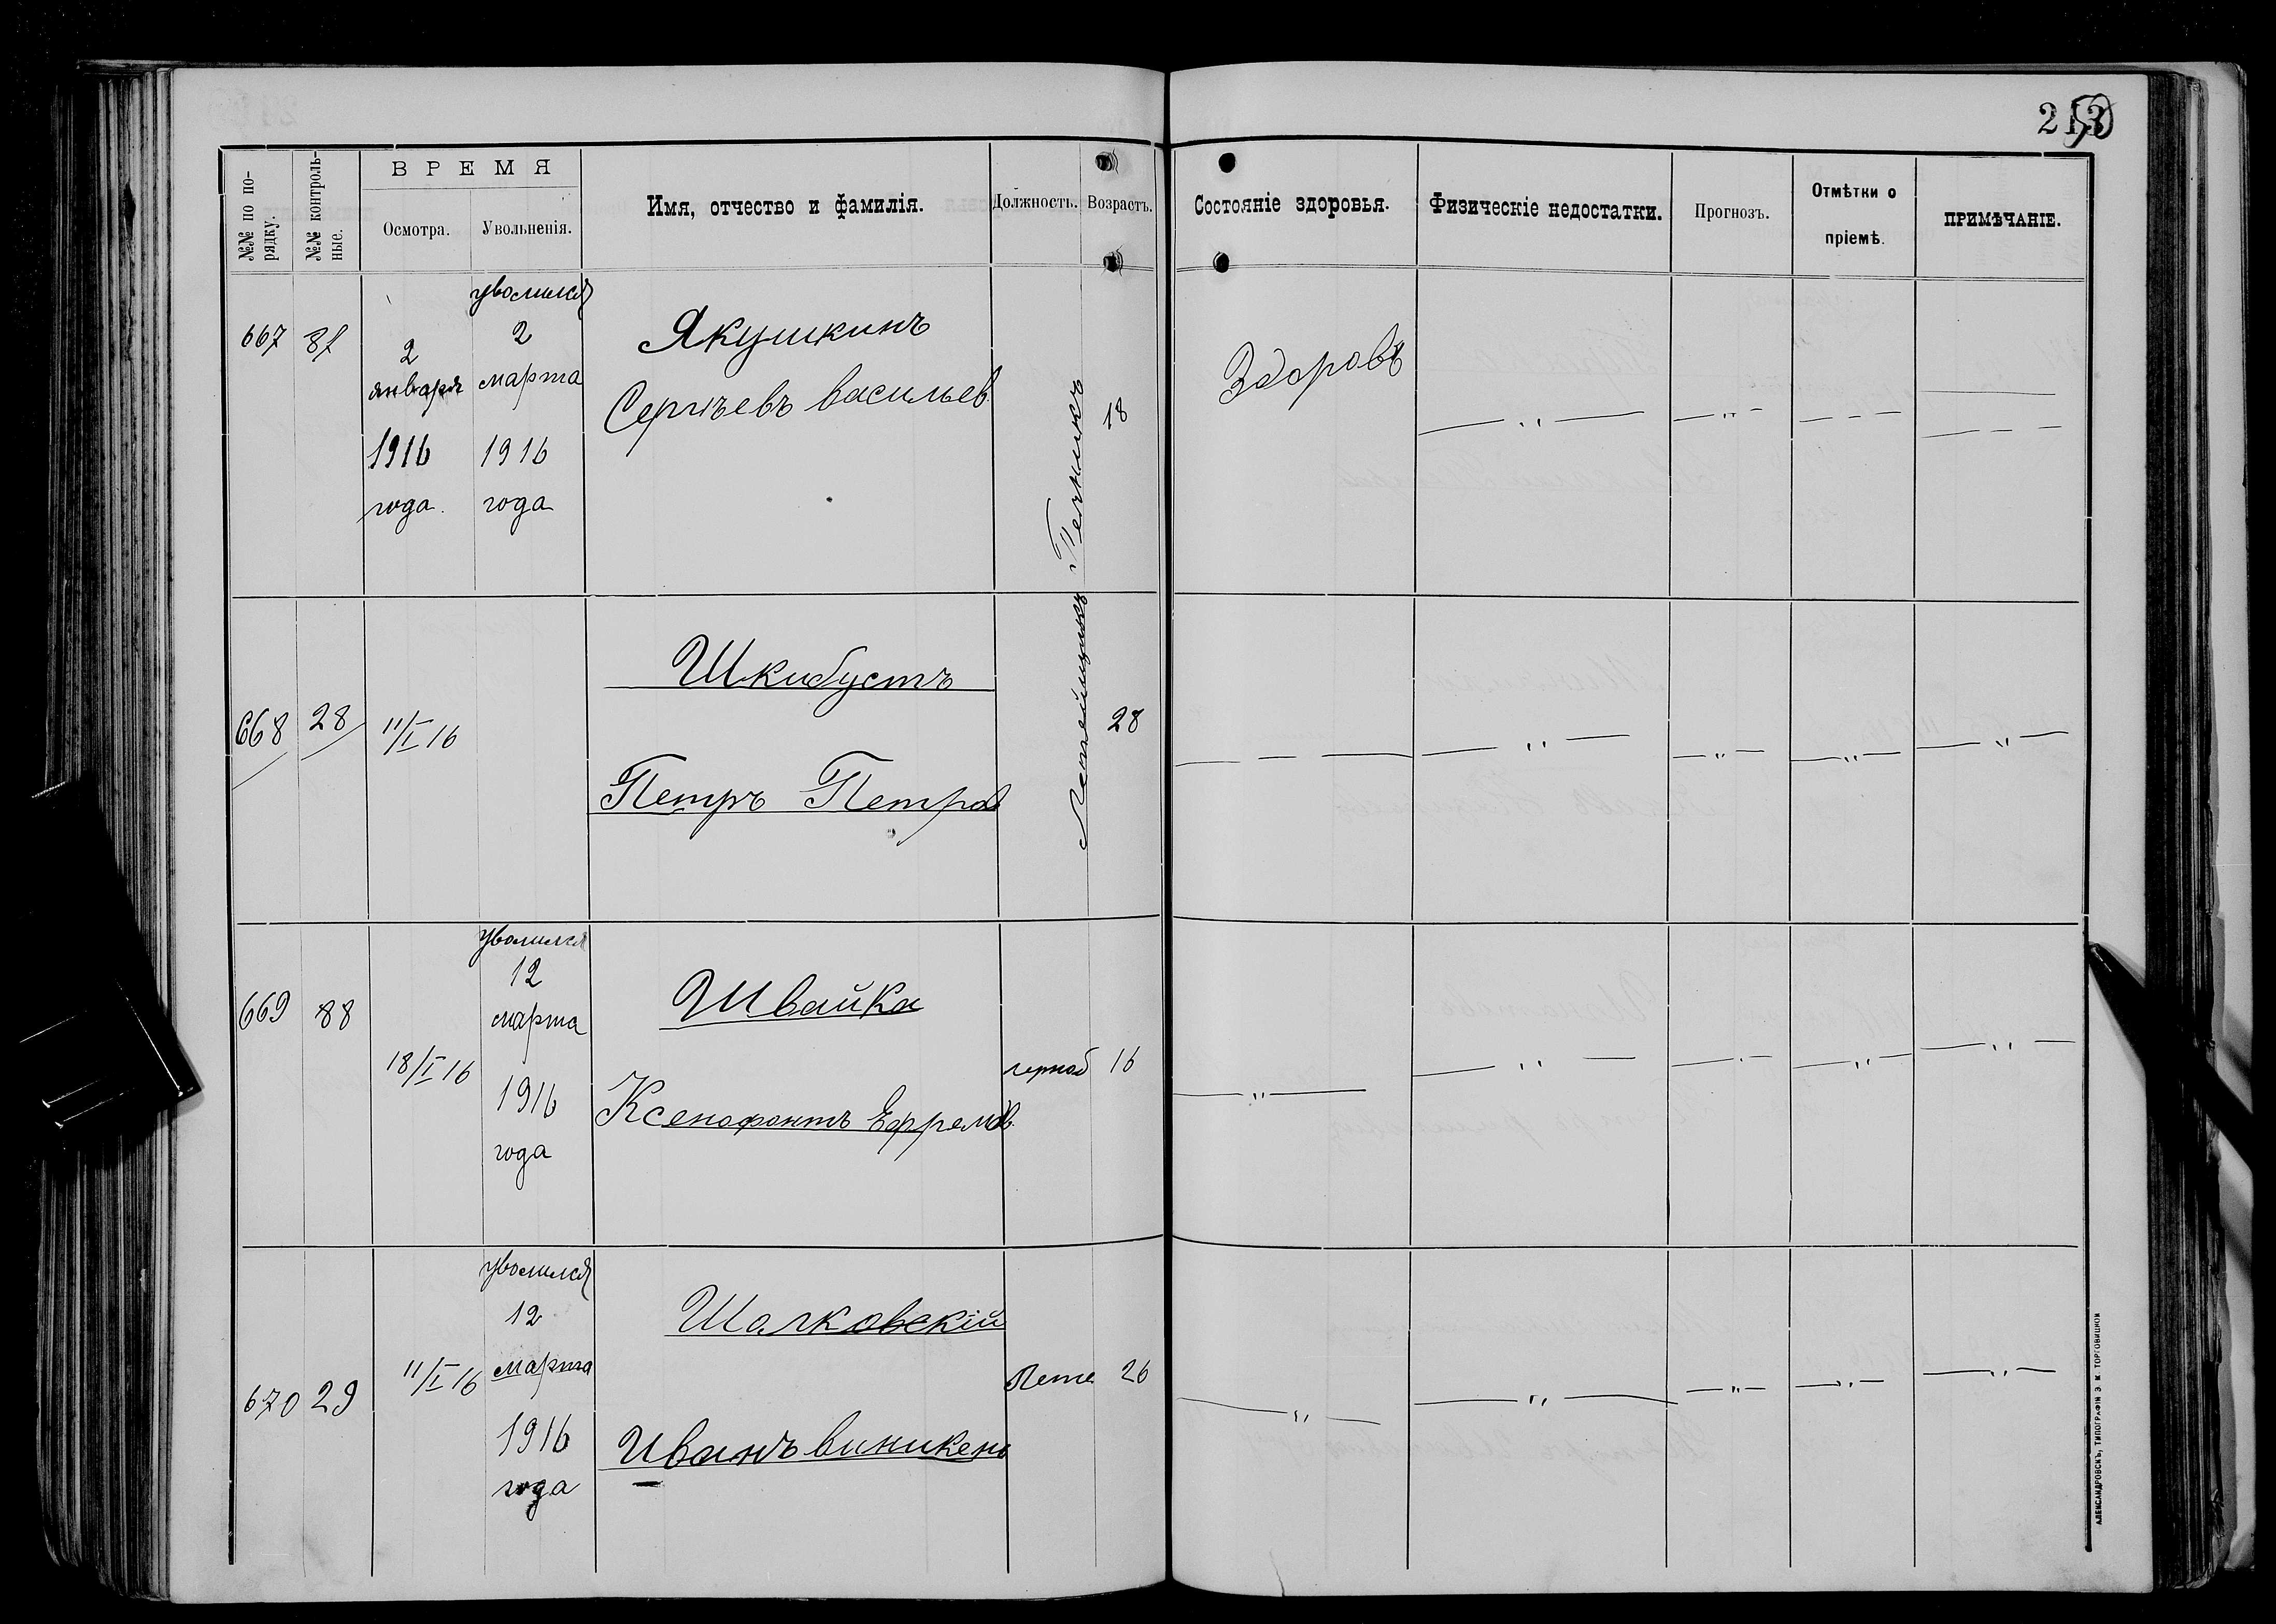 213
50
№№ по по-
рядку.
№№ контроль-
ные.
ВРЕМЯ
Осмотра.
Увольненія.
Имя, отчество и фамилія.
Должность.
Возрастъ.
Состояніе здоровья.
Физическіе недостатки.
Прогнозъ.
Отмѣтки о
пріемѣ.
ПРИМѢЧАНІЕ.
667
2
января
1916
года.
уволился
2
марта
1916
года
Якушкинъ
Сергѣевъ васильев.
18
Здоровъ
— „ —
— „ —
— — —
— — —
668
28
11/I 16
Шкибустъ
Петръ Петров
Летейщикъ
28
— — —
— „ —
— „ —
— „ —
— „ —
669
88
18/I 16
уволился
12
марта
1916
года
Швайка
Ксенофонтъ Ефремов.
черноб
16
— „ —
— „ —
— „ —
— „ —
— „ —
670
29
11/I 16
уволился
12
марта
1916
года
Шалковскій
Иванъ
Лете
26
— „ —
— „ —
— „ —
— „ —
— „ —
АЛЕКСАНДРОВСКЪ, ТИПОГРАФІЯ Э. М. ТОРГОВИЦКОЙ